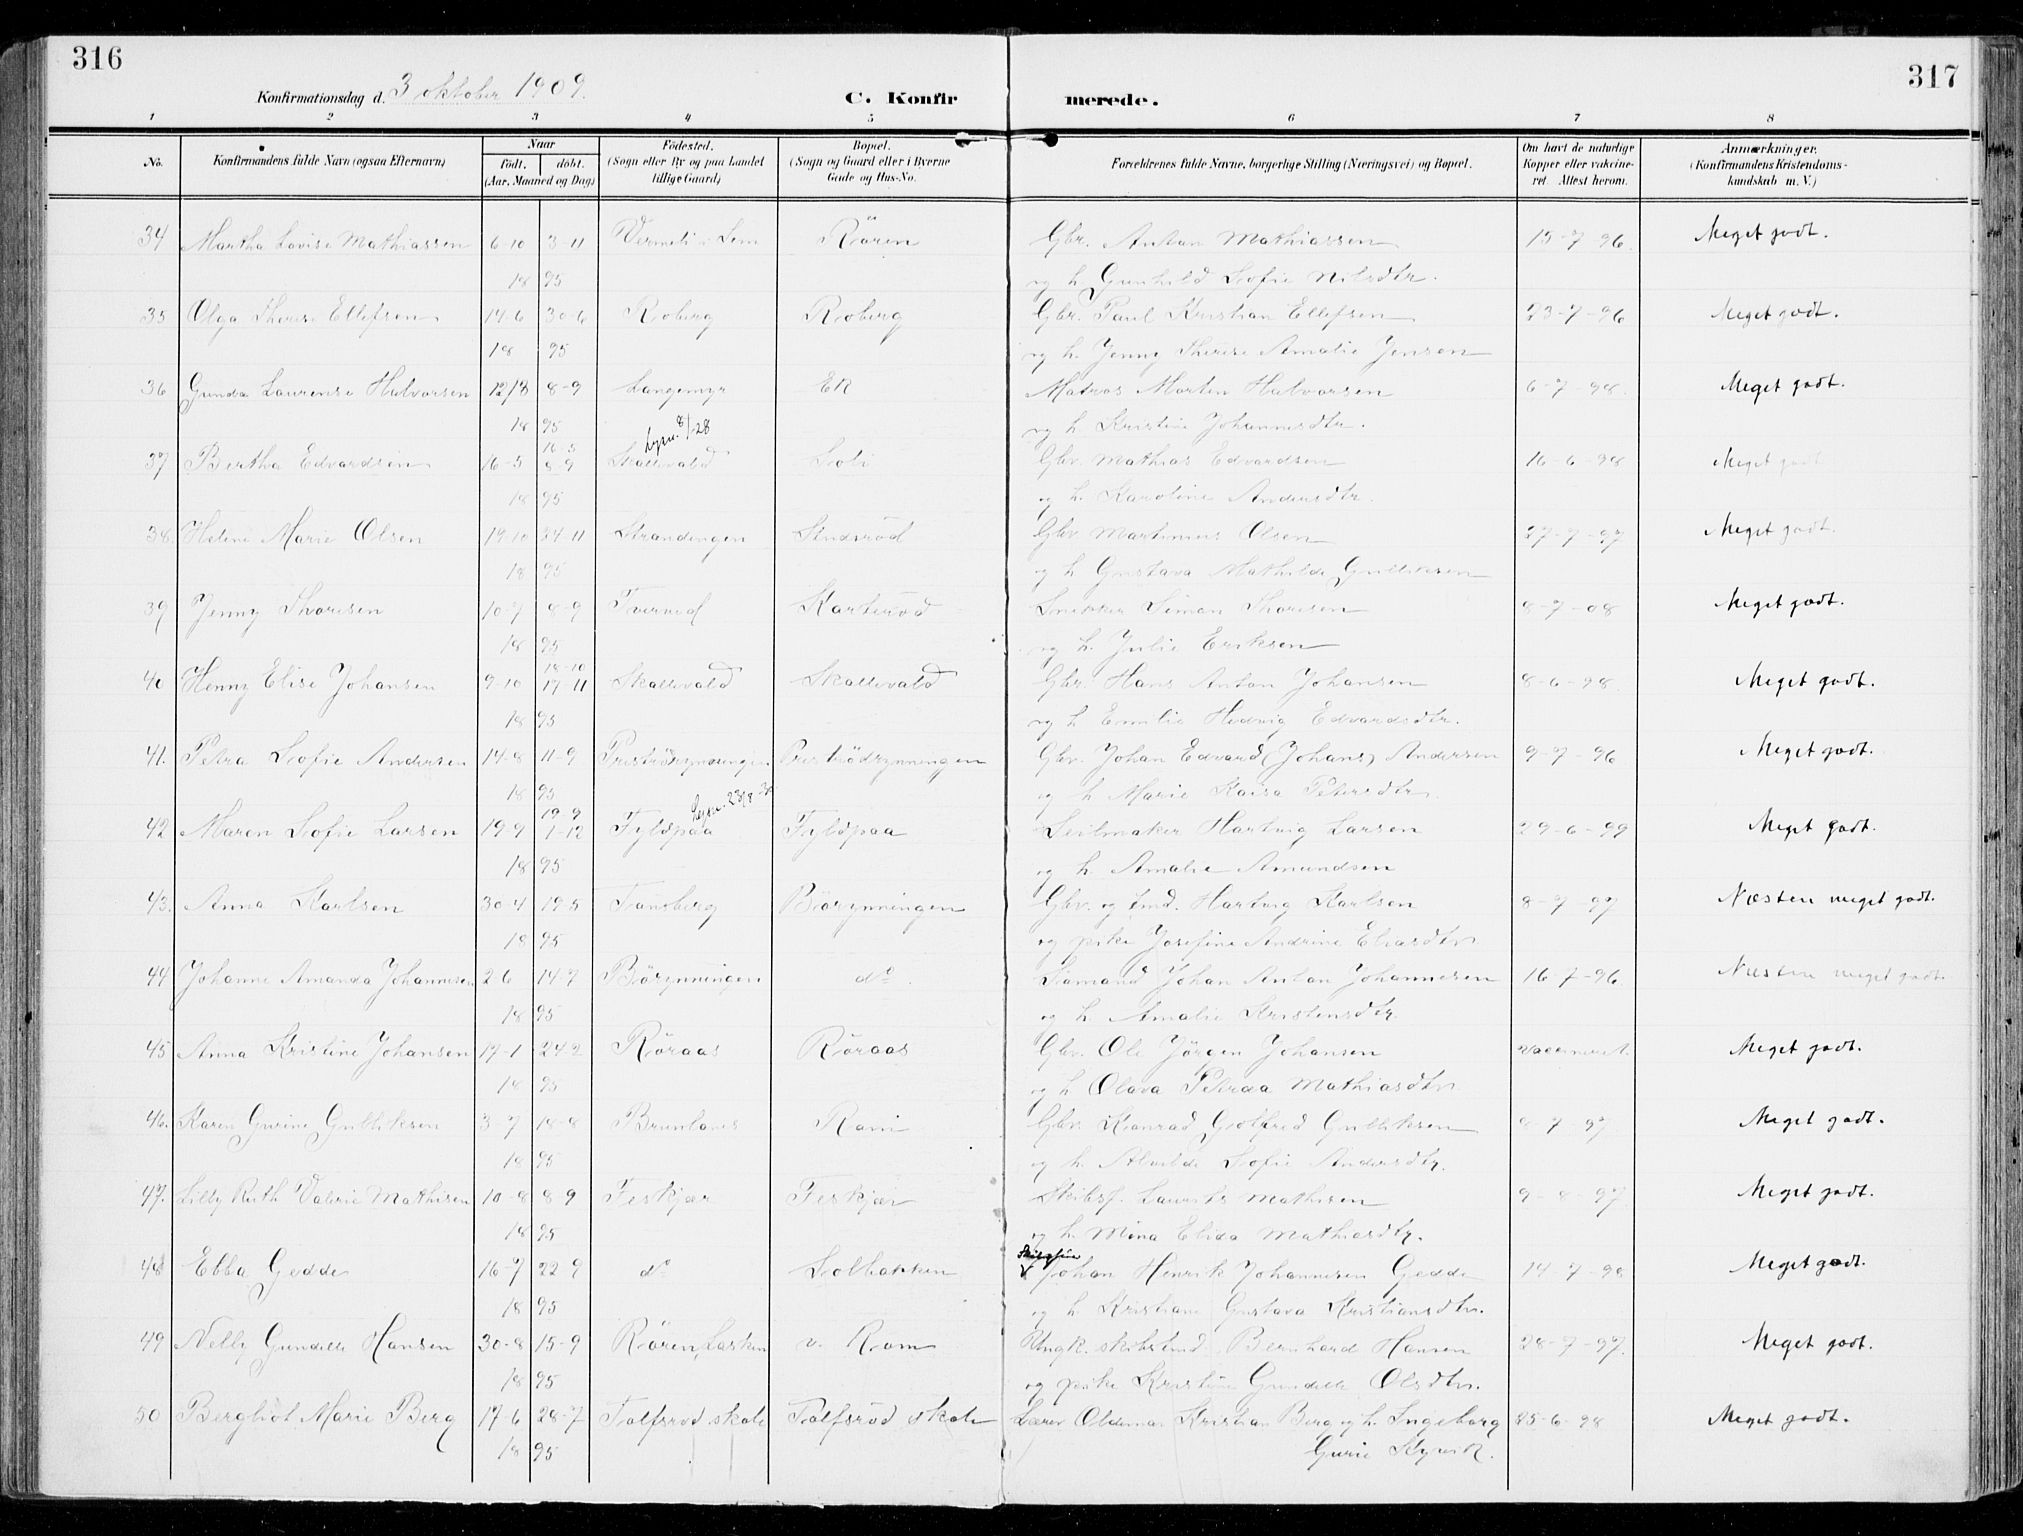 316
317
Konfirmationsdag d. 3 oktober 1909.
C. Konfirmerede.
1 2 3 4 5 6 7 8
No. Konfirmandens fulde Navn (ogsaa Efternavn) Naar født. døbt. (Aar, Maaned og Dag) Fødested. (Sogn eller By og paa Landet tillige Gaard) Bopæl. (Sogn og Gaard eller i Byerne Gade og Hus-No. Forældrenes fulde Navne, borgerlige Stilling (Næringsvei) og Bopæl. Om havt de naturlige Kopper eller vakcineret. Attest herom. Anmærkninger. (Konfirmandens Kristendomskundskab m. V.)
34 Martha Lovise Mathiassen 6-10 3-11 Vermeli i Sem Røren Gbr. Anton Mathiassen 15-7-96. Meget godt.
18 95 og h. Gunhild Sofie Nilsdtr.
35 Olga Therese Ellefsen 14-6 30-6 Roberg Roberg Gbr. Paul Kristian Ellefsen 23-7-96 Meget godt.
18 95 og h. Jenny Therese Amalie Jensen
36 Gunda Laurense Halvorsen 12/8 8-9 Langemyr Ek Matros Morten Halvorsen 6-7-98. Meget godt.
18 95 og h. Kristine Johannesdtr.
37 Bertha Edvardsen 16-5 16-5 8-9 Skallevald Soli Gbr. Mathias Edvardsen 16-6-98 Meget godt
18 95 og h. Karoline Andersdtr.
38. Helene Marie Olsen 19-10 24-11 Strandengen Stusrød Gbr. Martinius Olsen 27-7-97 Meget godt.
18 95 og h Gustava Mathilde Gulliksen
39 Jenny Thoresen 10-7 8-9 Tverved Karterød Snekker Simon Thoresen 8-7-08 Meget godt.
18 95 og h. Julie Eriksen
40 Henny Elise Johansen 9-10 18-10 17-11 Skallevald Skallevald Gbr. Hans Anton Johansen 8-6-98. Meget godt.
18 95 og h Emilie Hedvig Edvardsdtr.
41. Petra Sofie Andersen 14-8 11-9 Presterødrynningen Presterødrynningen Gbr. Johan Edvard (Johans) Andersen 9-7-96 Meget godt.
18 95 og h Marie Kaisa Petersdtr.
42 Maren Sofie Larsen 19-9 19-9 1-12 Fyldpaa Fyldpaa Seilmaker Hartvig Larsen 29-6-99 Meget godt.
18 95 og h. Amalie Amundsen
43. Anna Karlsen 30-4 19-5 Tønsberg Børynningen Gbr. og tmd. Hartvig Karlsen 8-7-97 Næsten meget godt.
18 95 og pike Josefine Andrine Eliasdtr
44 Johanne Amanda Johannesen 2-6 14-7 Børynningen do. Sømand Johan Anton Johannesen 16-7-96 Næsten meget godt.
18 95 og h. Amalie Kristensdtr.
45 Anna Kristine Johansen 17-1 24-2 Røraas Røraas Gbr. Ole Jørgen Johansen vaccineret. Meget godt.
18 95 og h Olava Petrea Mathiasdtr
46. Karen Gurine Gulliksen 3-7 18-8 Brunlanes Rom Gbr. Konrad Gotfred Gulliksen 8-7-97 Meget godt.
18 95 og h. Alvilde Sofie Andersdtr.
47. Lilly Ruth Valerie Mathisen 10-8 8-9 Feskjær Feskjær Skibsf. Laurits Mathisen 9-8-97. Meget godt.
18 95 og h. Mina Elida Mathiasdtr.
48 Ebba Gedde 16-7 22-9 do Solbakken Johan Henrik Johannesen Gedde 14-7-98 Meget godt.
18 95 og h Kristiane Gustava Kristiansdtr.
49 Nelly Gundelle Hansen 30-8 15-9 Røren, Lasken v. Rom Ungk. skibstmd Bernhard Hansen 28-7-97. Meget godt.
18 95 og pike Kristine Gundelle Olsdtr.
50 Bergliot Marie Berg 17-6 28-7 Tolfsrød skole Tolfsrød skole Lærer Oldemar Kristian Berg og h. Ingeborg 25-6-98 Meget godt.
18 95 Gurie Kyvik.